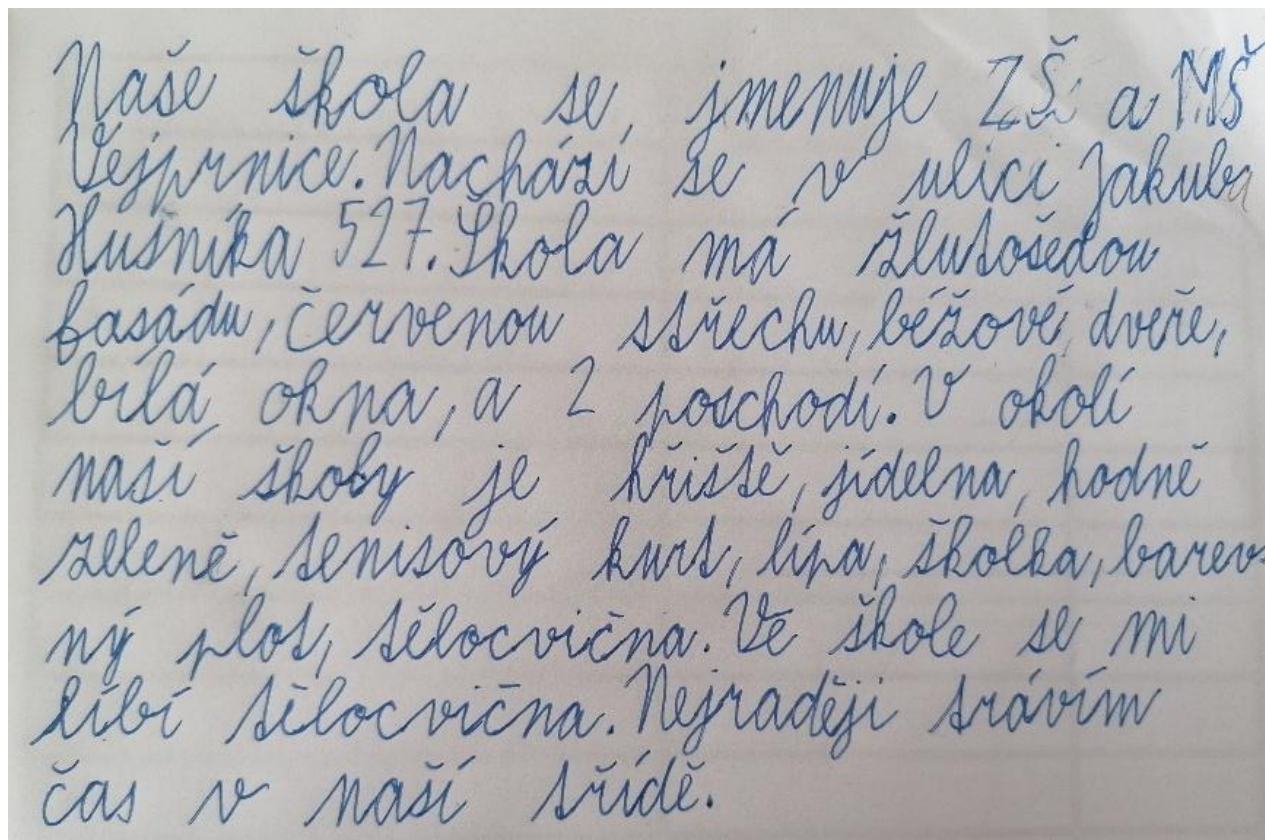 Naše škola se jmenuje ZŠ a MŠ
Vejprnice. Nachází se v ulici Jakuba
Husníka 527. Škola má žlutošedou
fasádu, červenou střechu, béžové dveře,
bílá okna, a 2 poschodí. V okolí
naší školy je hřiště, jídelna, hodně
zeleně, tenisový kurt, lípa, školka, barev-
ný plot, tělocvična. Ve škole se mi
líbí tělocvična. Nejraději trávím
čas v naší třídě.